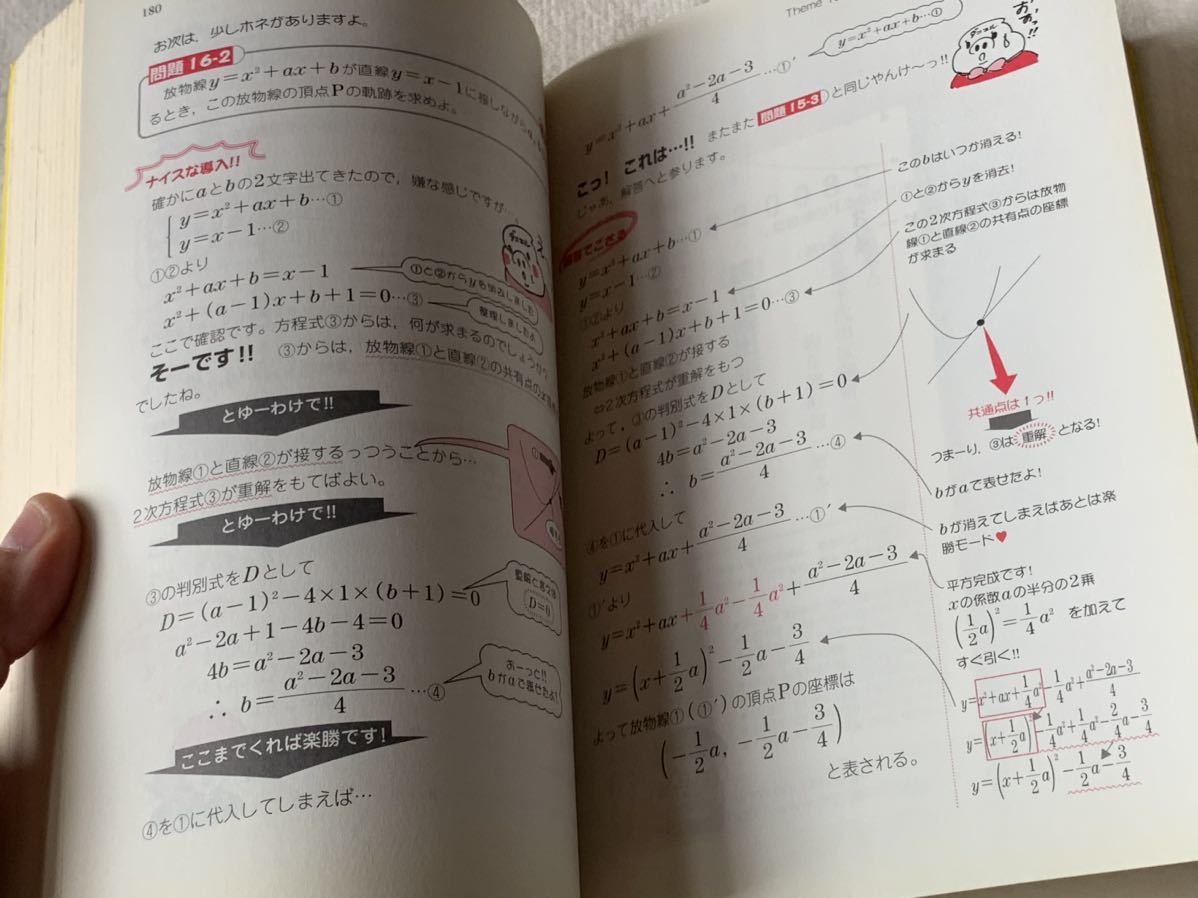 180
お次は，少しホネがありますよ。
問題 16-2
放物線y=x²+ax+bが直線y=x-1に接しながら
るとき，この放物線の頂点Pの軌跡を求めよ。
ナイスな導入!!
確かにaとbの2文字出てきたので，嫌な感じですが…
y=x²+ax+b…①
y=x-1…②
①②より
x²+ax+b=x-1
①と②からyを消去しました
x²+(a-1)x+b+1=0…③
整理しましたよ
ここで確認です。方程式③からは，何が求まるのでしょうか
そーです!! ③からは，放物線①と直線②の共有点の
でしたね。
とゆーわけで!!
放物線①と直線②が接するっつうことから…
2次方程式③が重解をもてばよい。
とゆーわけで!!
③の判別式をDとして
D=(a-1)²-4×1×(b+1)=0
D=0
a²-2a+1-4b-4=0
4b=a²-2a-3
∴ b=(a²-2a-3)/4…④
おーっと!!
bがaで表せたよ!
ここまでくれば楽勝です!
④を①に代入してしまえば…
Theme
y=x²+ax+b…①
y=x²+ax+(a²-2a-3)/4…①′
ダニエル
おっ，おっ!!
こっ! これは…!! またまた 問題 15-3 と同じやんけ～っ!!
じゃあ，解答へと参ります。
解答でござる
y=x²+ax+b…①
y=x-1…②
①②より
x²+ax+b=x-1
x²+(a-1)x+b+1=0…③
放物線①と直線②が接する
⇔2次方程式が重解をもつ
よって，③の判別式をDとして
D=(a-1)²-4×1×(b+1)=0
4b=a²-2a-3
∴ b=(a²-2a-3)/4…④
④を①に代入して
y=x²+ax+(a²-2a-3)/4…①′
①′より
y=x²+ax+1/4a²-1/4a²+(a²-2a-3)/4
y=(x+1/2a)²-1/2a-3/4
よって放物線①(①′)の頂点Pの座標は
(-1/2a, -1/2a-3/4)
と表される。
このbはいつか消える!
①と②からyを消去!
この2次方程式③からは放物
線①と直線②の共有点の座標
が求まる
共通点は1つ!!
つまーり，③は重解となる!
bがaで表せたよ!
bが消えてしまえばあとは楽
勝モード♥
平方完成です!
xの係数aの半分の2乗
(1/2a)²=1/4a² を加えて
すぐ引く!!
y=x²+ax+1/4a²-1/4a²+(a²-2a-3)/4
y=(x+1/2a)²-1/4a²+1/4a²-2/4a-3/4
y=(x+1/2a)²-1/2a-3/4